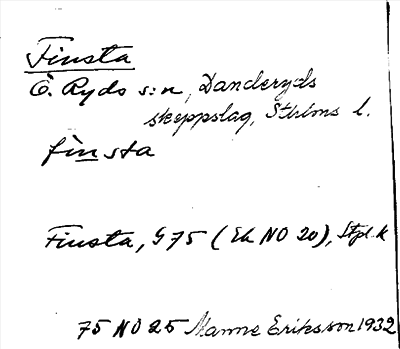 Finsta
Ö. Ryds s:n, Danderyds
skeppslag, Sthlms l.
finsta
Finsta, G 75 (Ek NO 20), Stpl.k
75 NO 25 Manne Eriksson 1932